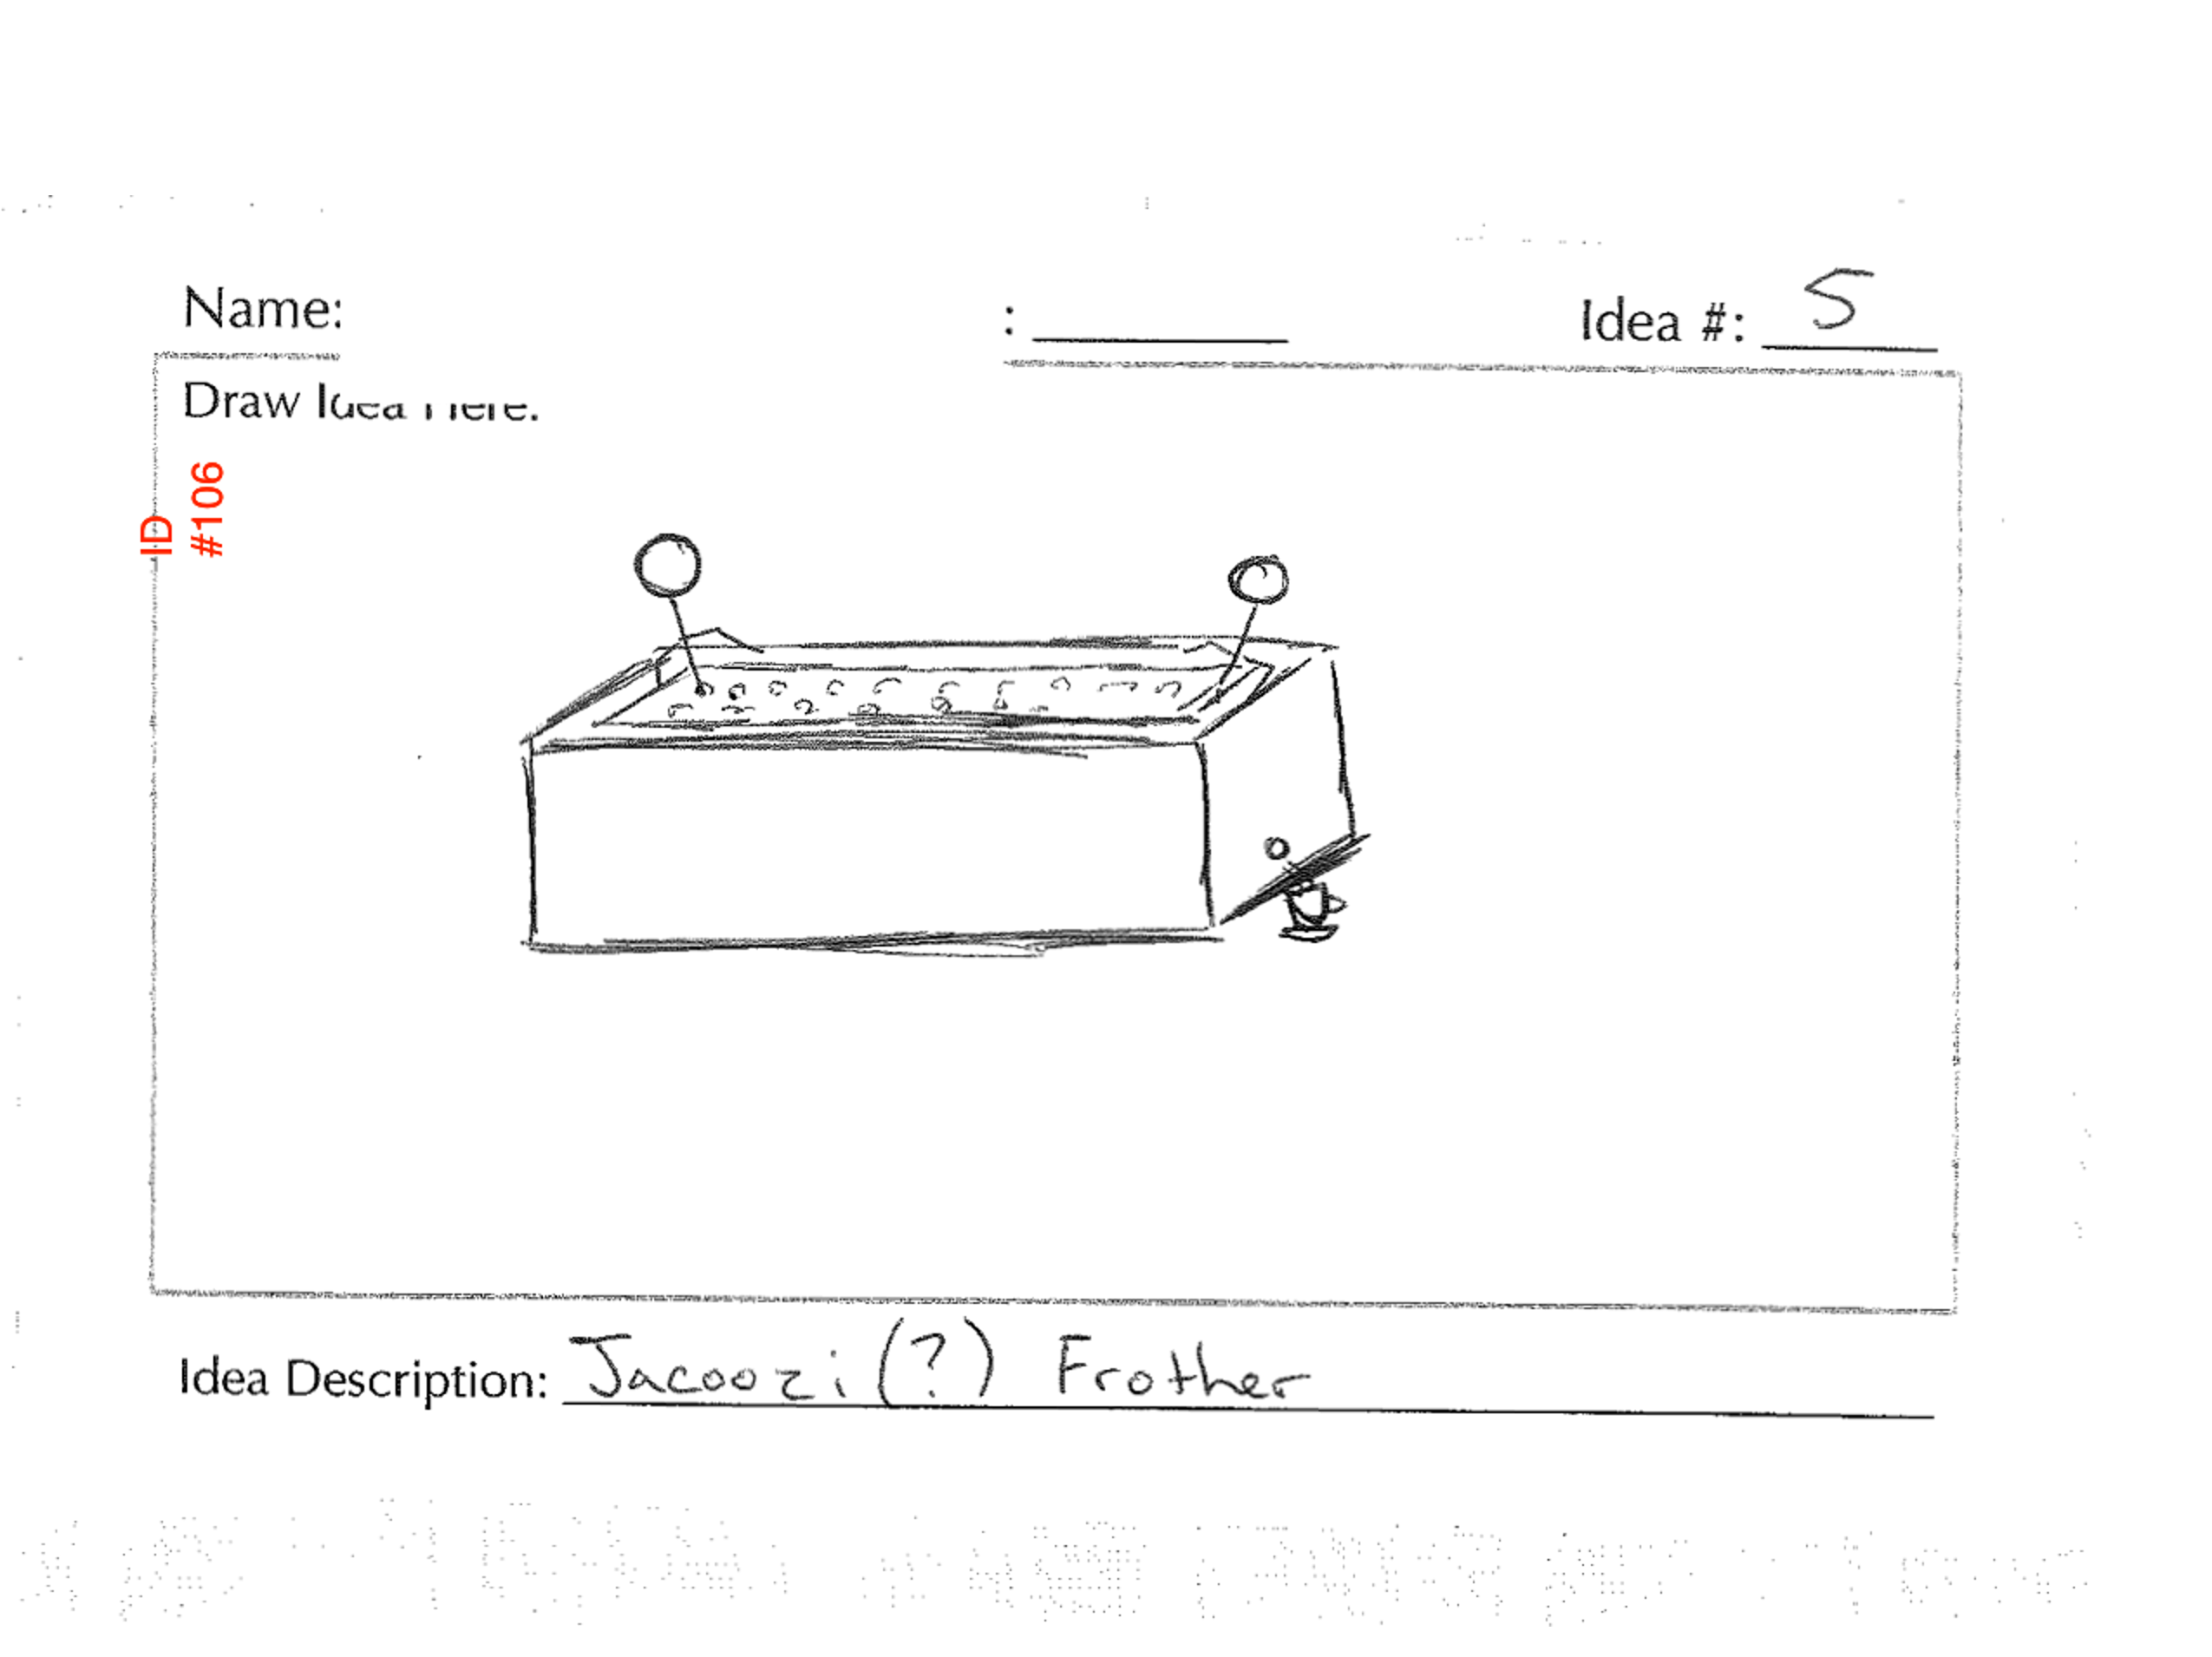 Name: : Idea #: 5
Draw Idea Here:
ID
#106
Idea Description: Jacoozi (?) Frother